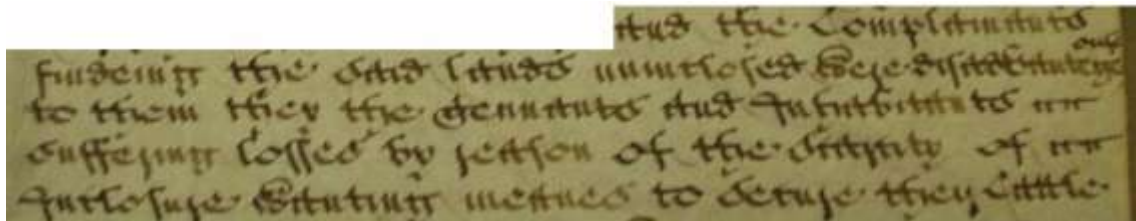 and the Complainants
findeing the said lands uninclosed were disadvantageous
to them they the Tennants and Inhabitants
suffering losses by reason of the scarcity of
Inclosure wanting meanes to secure their cattle